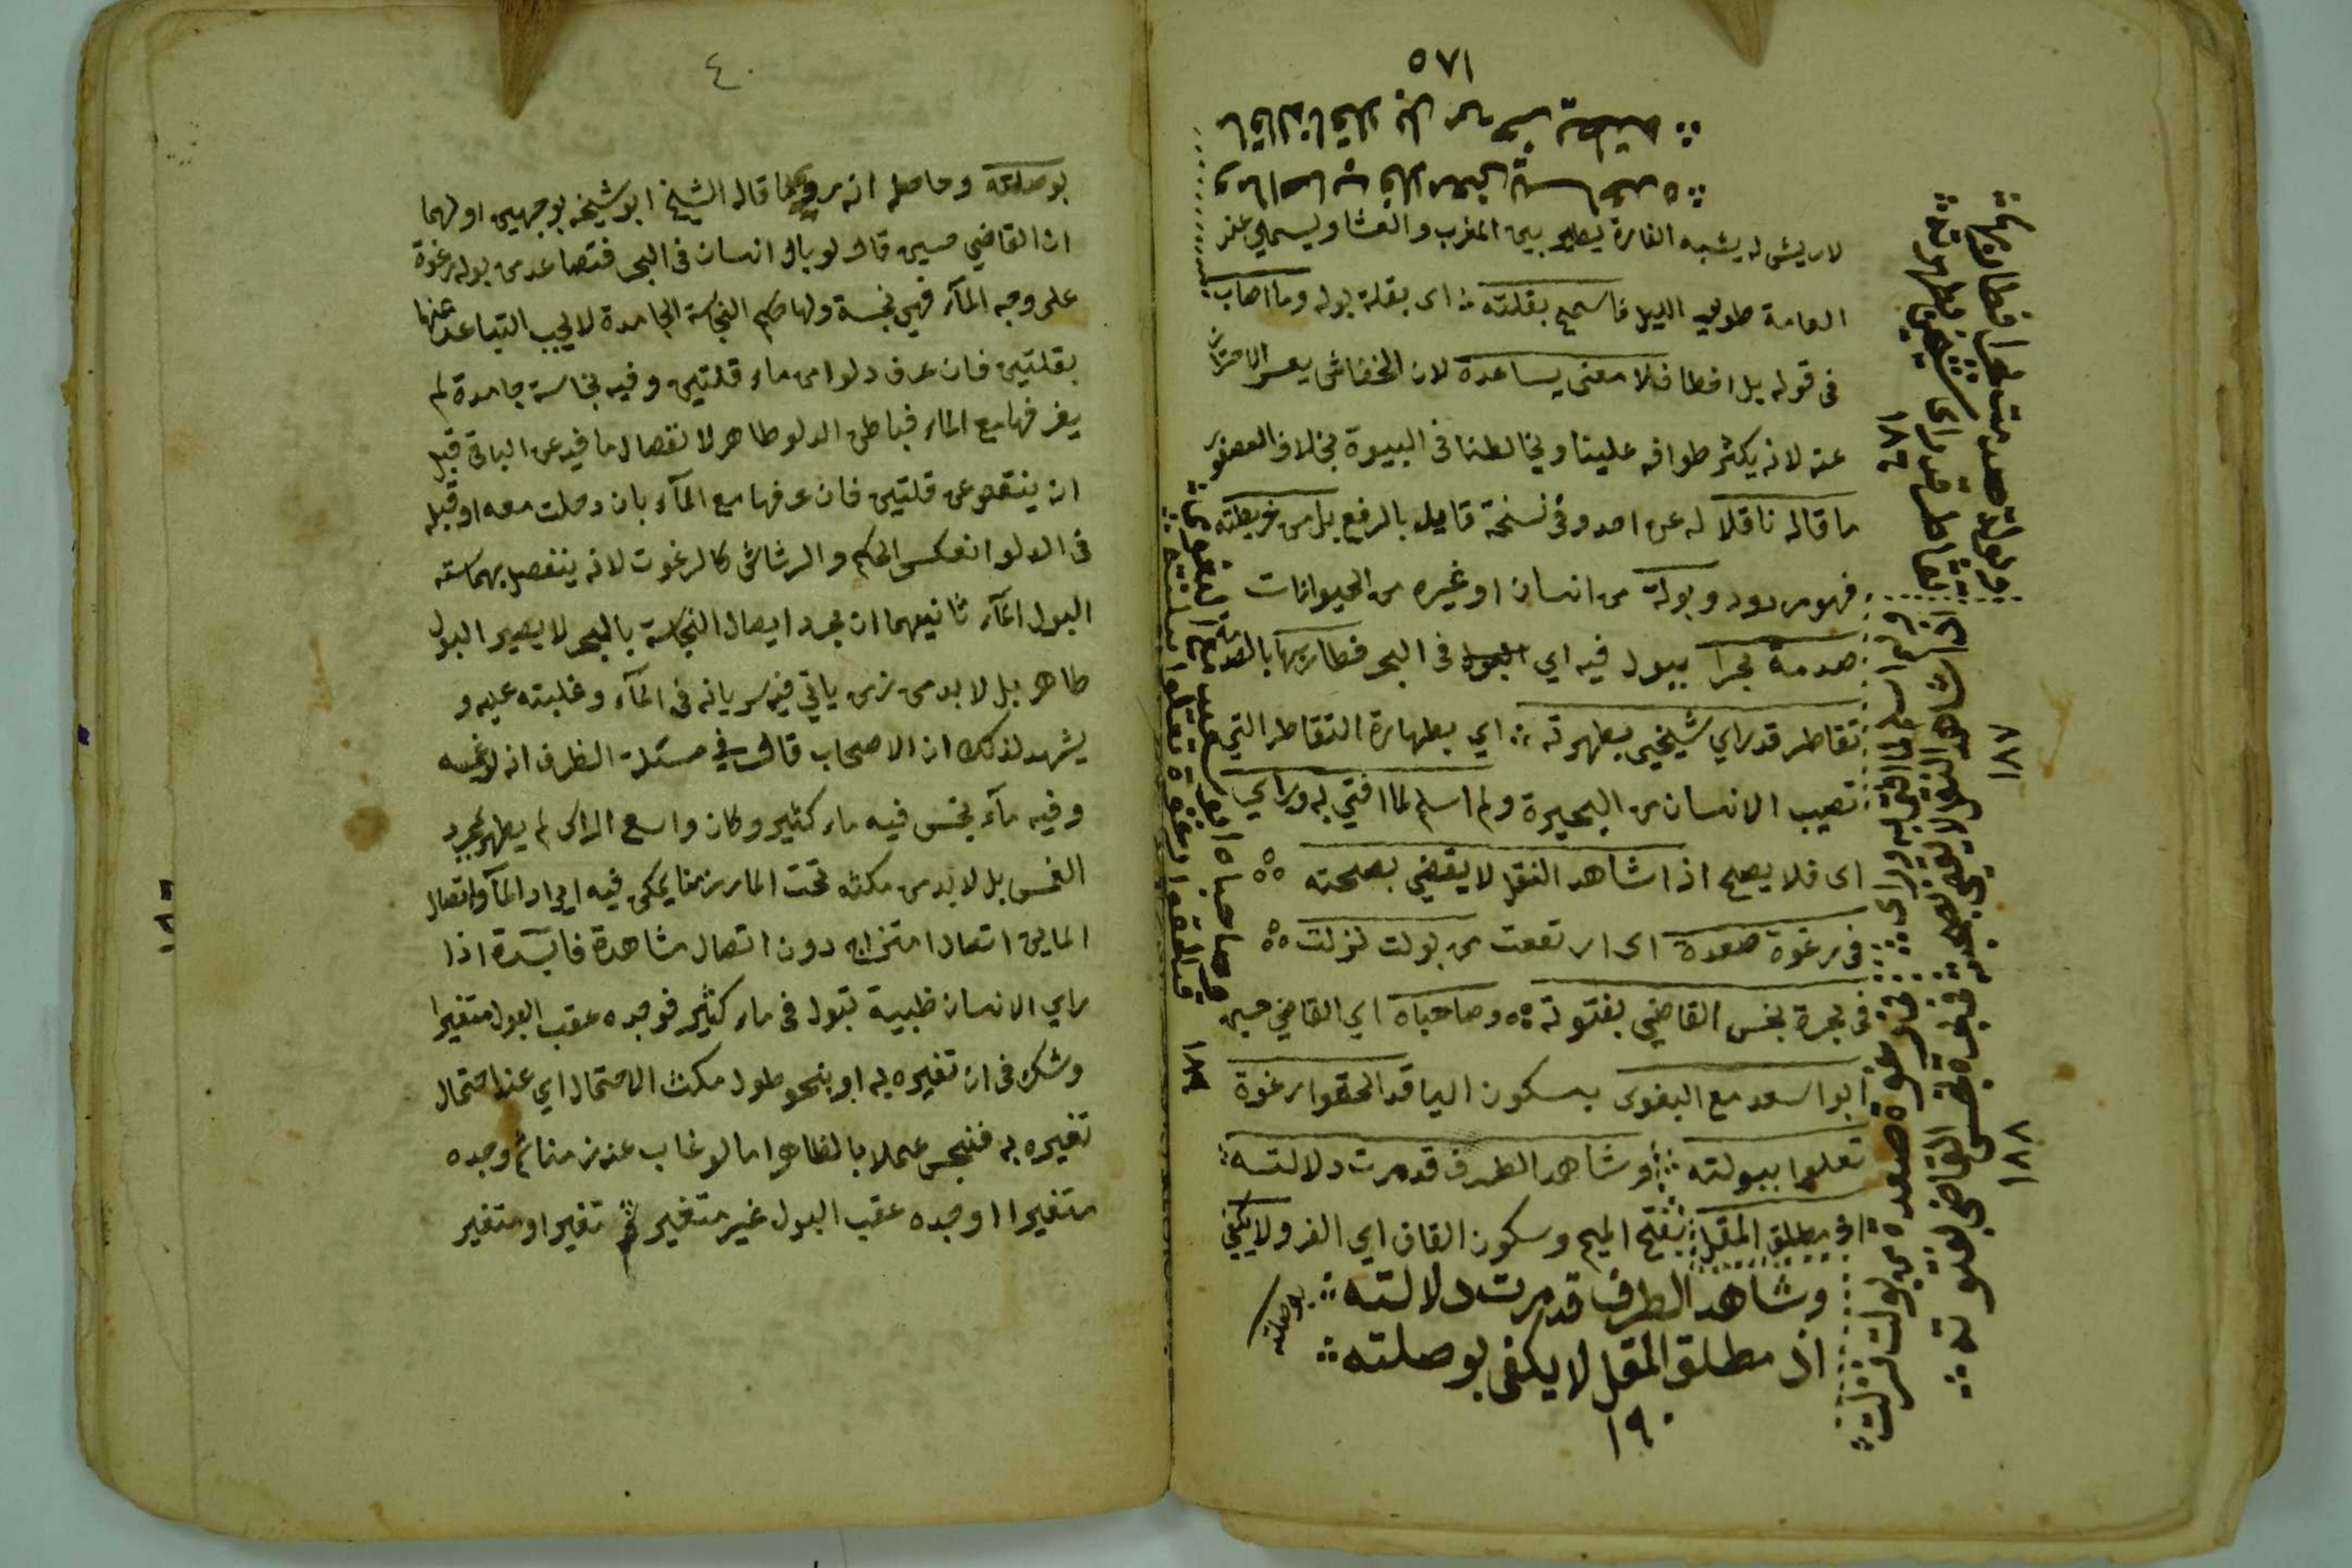 ١٨٥
ما قاله ناقلا بل من خريطته
وما اصاب فلا معنى يساعده
لا ريش له يشبه الفارة يطير بين المغرب والعشا ويسمى عند
العامة طوير الليل فاسمح بقلته اى بقلة بوله وما اصاب
فى قوله بل اخطا فلا معنى يساعده لان الخفاش يعسر الاحتراز
عنه لانه يكثر طوافه علينا ويخالطنا فى البيوة بخلاف العصفور
ما قاله ناقلا له عن احد وفى نسخة قايل بالرفع بل من خريطته
فهو مردود وبولة من انسان او غيره من الحيوانات
صدمة بحرا ببول فيه اي البول فى البحر فطار بها بالصدمة
تقاطر قد راي شيخي بطهرته اي بطهارة التقاطر التي
تصيب الانسان من البحيرة ولم اسلم لما افتي به وراي
اى فلا يصح اذا شاهد النقل لا يقضي بصحته
فى رغوة صعدة اى ارتفعت من بولت نزلت
فى بحرة نجس القاضي بفتوته وصاحباه اي القاضي حسين
ابوا سعد مع البغوى بسكون اليا قد الحقوا رغوة
تعلوا ببولته وشاهد الطرف قد مرت دلالته
اذ مطلق المقل بفتح الميم وسكون القاف اي الغر ولا يكفي
بوصلته
وشاهد الطرف قد مرت دلالته
اذ مطلق المقل لا يكفى بوصلته
١٩٠
وبولة صدمت بحرا فطار بها
تقاطر قد راى شيخي بطهرته
١٨٦
ولم اسلم لما افتى به وراى
اذا شاهد النقل لا يقضى بصحته
١٨٧
فى رغوة صعدة من بولت نزلت
فى بحرة نجس القاضى بفتوته
١٨٨
وصاحباه ابو سعد مع البغوى
قد الحقوا رغوة تعلوا ببولته
١٨٩
٤٠
بوصلته وحاصله انه رد ما قاله الشيخ ابو شيخه بوجهين اولهما
ان القاضي حسين قال لو بال انسان فى البحر فتصاعد من بوله رغوة
على وجه المآء فهي نجسة ولها حكم النجاسة الجامدة لا يجب التباعد عنها
بقلتين فان غرف دلوا من ماء قلتين وفيه نجاسة جامدة لم
يغرفها مع الماء فباطن الدلو طاهر لانفصال ما فيه عن الباقى قبل
ان ينقص عن قلتين فان غرفها مع المآء بان دخلت معه او قبله
فى الدلو انعكس الحكم والرشاش كالرغوت لانه ينفصل بهماسته
البول المآء ثانيهما ان مجرد ايصال النجاسة بالبحر لا يصير البول
طاهر بل لا بد من زمن ياتي فيه سريانه فى المآء وغلبته عليه و
يشهد لذلك ان الاصحاب قال في مسئلة الظرف انه لو غمسه
وفيه مآء نجس فيه ماء كثير وكان واسع الراس لم يطهر بمجرد
الغمس بل لا بد من مكثه تحت الماء زمنا يمكن فيه ايراد المآ واتصال
الماين اتصال امتزاج دون اتصال مشاهدة فايدة اذا
راي الانسان ظبية تبول فى ماء كثير فوجده عقب البول متغيرا
وشك فى ان تغيره به او بنحو طول مكث الاحتمال اي عند احتمال
تغيره به فنجس عملا بالظاهر اما لو غاب عنه زمنا ثم وجده
متغيرا او وجده عقب البول غير متغير ثم تغير او متغير
١٨٦